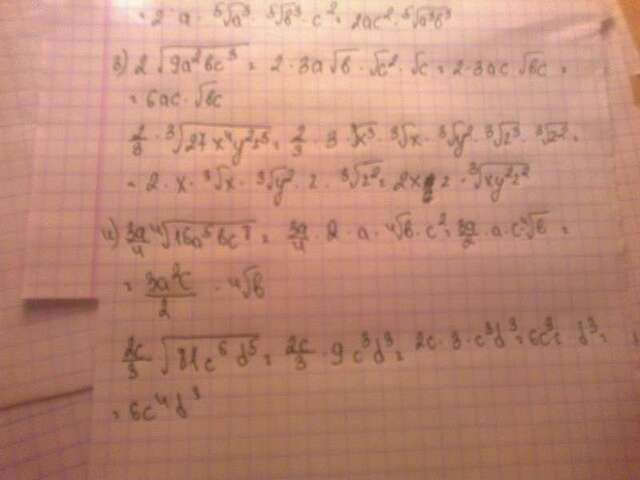 = 2 · a · ⁵√a³ · ⁵√b³ · c² = 2ac² · ⁵√a³b³
3) 2 √9a²bc³ = 2 · 3a√b · √c² · √c = 2·3ac · √bc =
= 6ac · √bc
2/3 · ³√27x⁴y²z⁵ = 2/3 · 3 · ³√x³ · ³√x · ³√y² · ³√z³ · ³√z² =
= 2 · x · ³√x · ³√y² · z · ³√z² = 2x z · ³√xy²z²
4) 3a/4 ⁴√16a⁵bc⁸ = 3a/4 · 2 · a · ⁴√b · c² = 3a/2 · a · c ⁴√b =
= 3a²c/2 · ⁴√b
2c/3 √81c⁶d⁵ = 2c/3 · 9c³d³ = 2c · 3 · c³d³ = 6c³ d³ =
= 6c⁴d³